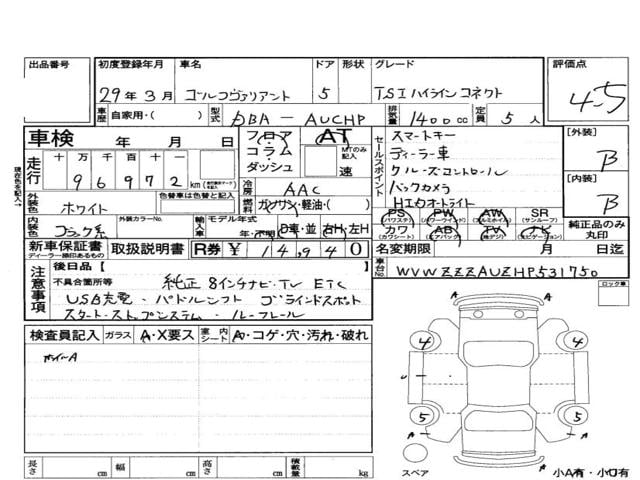 出品番号 初度登録年月 車名 ドア 形状 グレード 評価点
29年3月 ゴールフヴァリアント 5 TSIハイラインコネクト 4.5
車歴 自家用・( ) 型式 DBA-AUCHP 排気量 1400cc 定員 5人
車検 年 月 日 フロア コラム ダッシュ AT MTのみ記入 速
セールスポイント スマートキー [外装] B
ディーラー車
走行 十 万 千 百 十 一 96972 km
クルーズコントロール [内装] B
冷房 AAC バックカメラ
外装色 ホワイト 色替車は色替と記入 燃料 ガソリン・軽油・( ) HIDオートライト
内装色 ブラック系 外装カラーNo. 輸入車 モデル年式 年・不明 D車・並 右H・左H
PS (パワステ) PW (パワーウインド) AW (アルミホイル) SR (サンルーフ) 純正品のみ丸印
カワ (カワシート) AB (エアバック) TV (地デジ) ナビ (純正ナビゲーション)
新車保証書 ディーラー捺印あるもの 取扱説明書 R券 ¥ 14,940 名変期限 月 日迄
注意事項 後日品 [ ] 車台No. WVWZZZAUZHP531750
不具合箇所等 純正8インチナビ・TV ETC
USB充電・パドルシフト ブラインドスポット
スタート・ストップシステム・ルーフレール
現在色を記入→
ロック車
検査員記入 ガラス A・X要ス 室内シート A・コゲ・穴・汚れ・破れ
ホイールA
4 4
5 5
スペア 小A有・小U有
長さ cm 幅 cm 高さ cm 積載量 kg